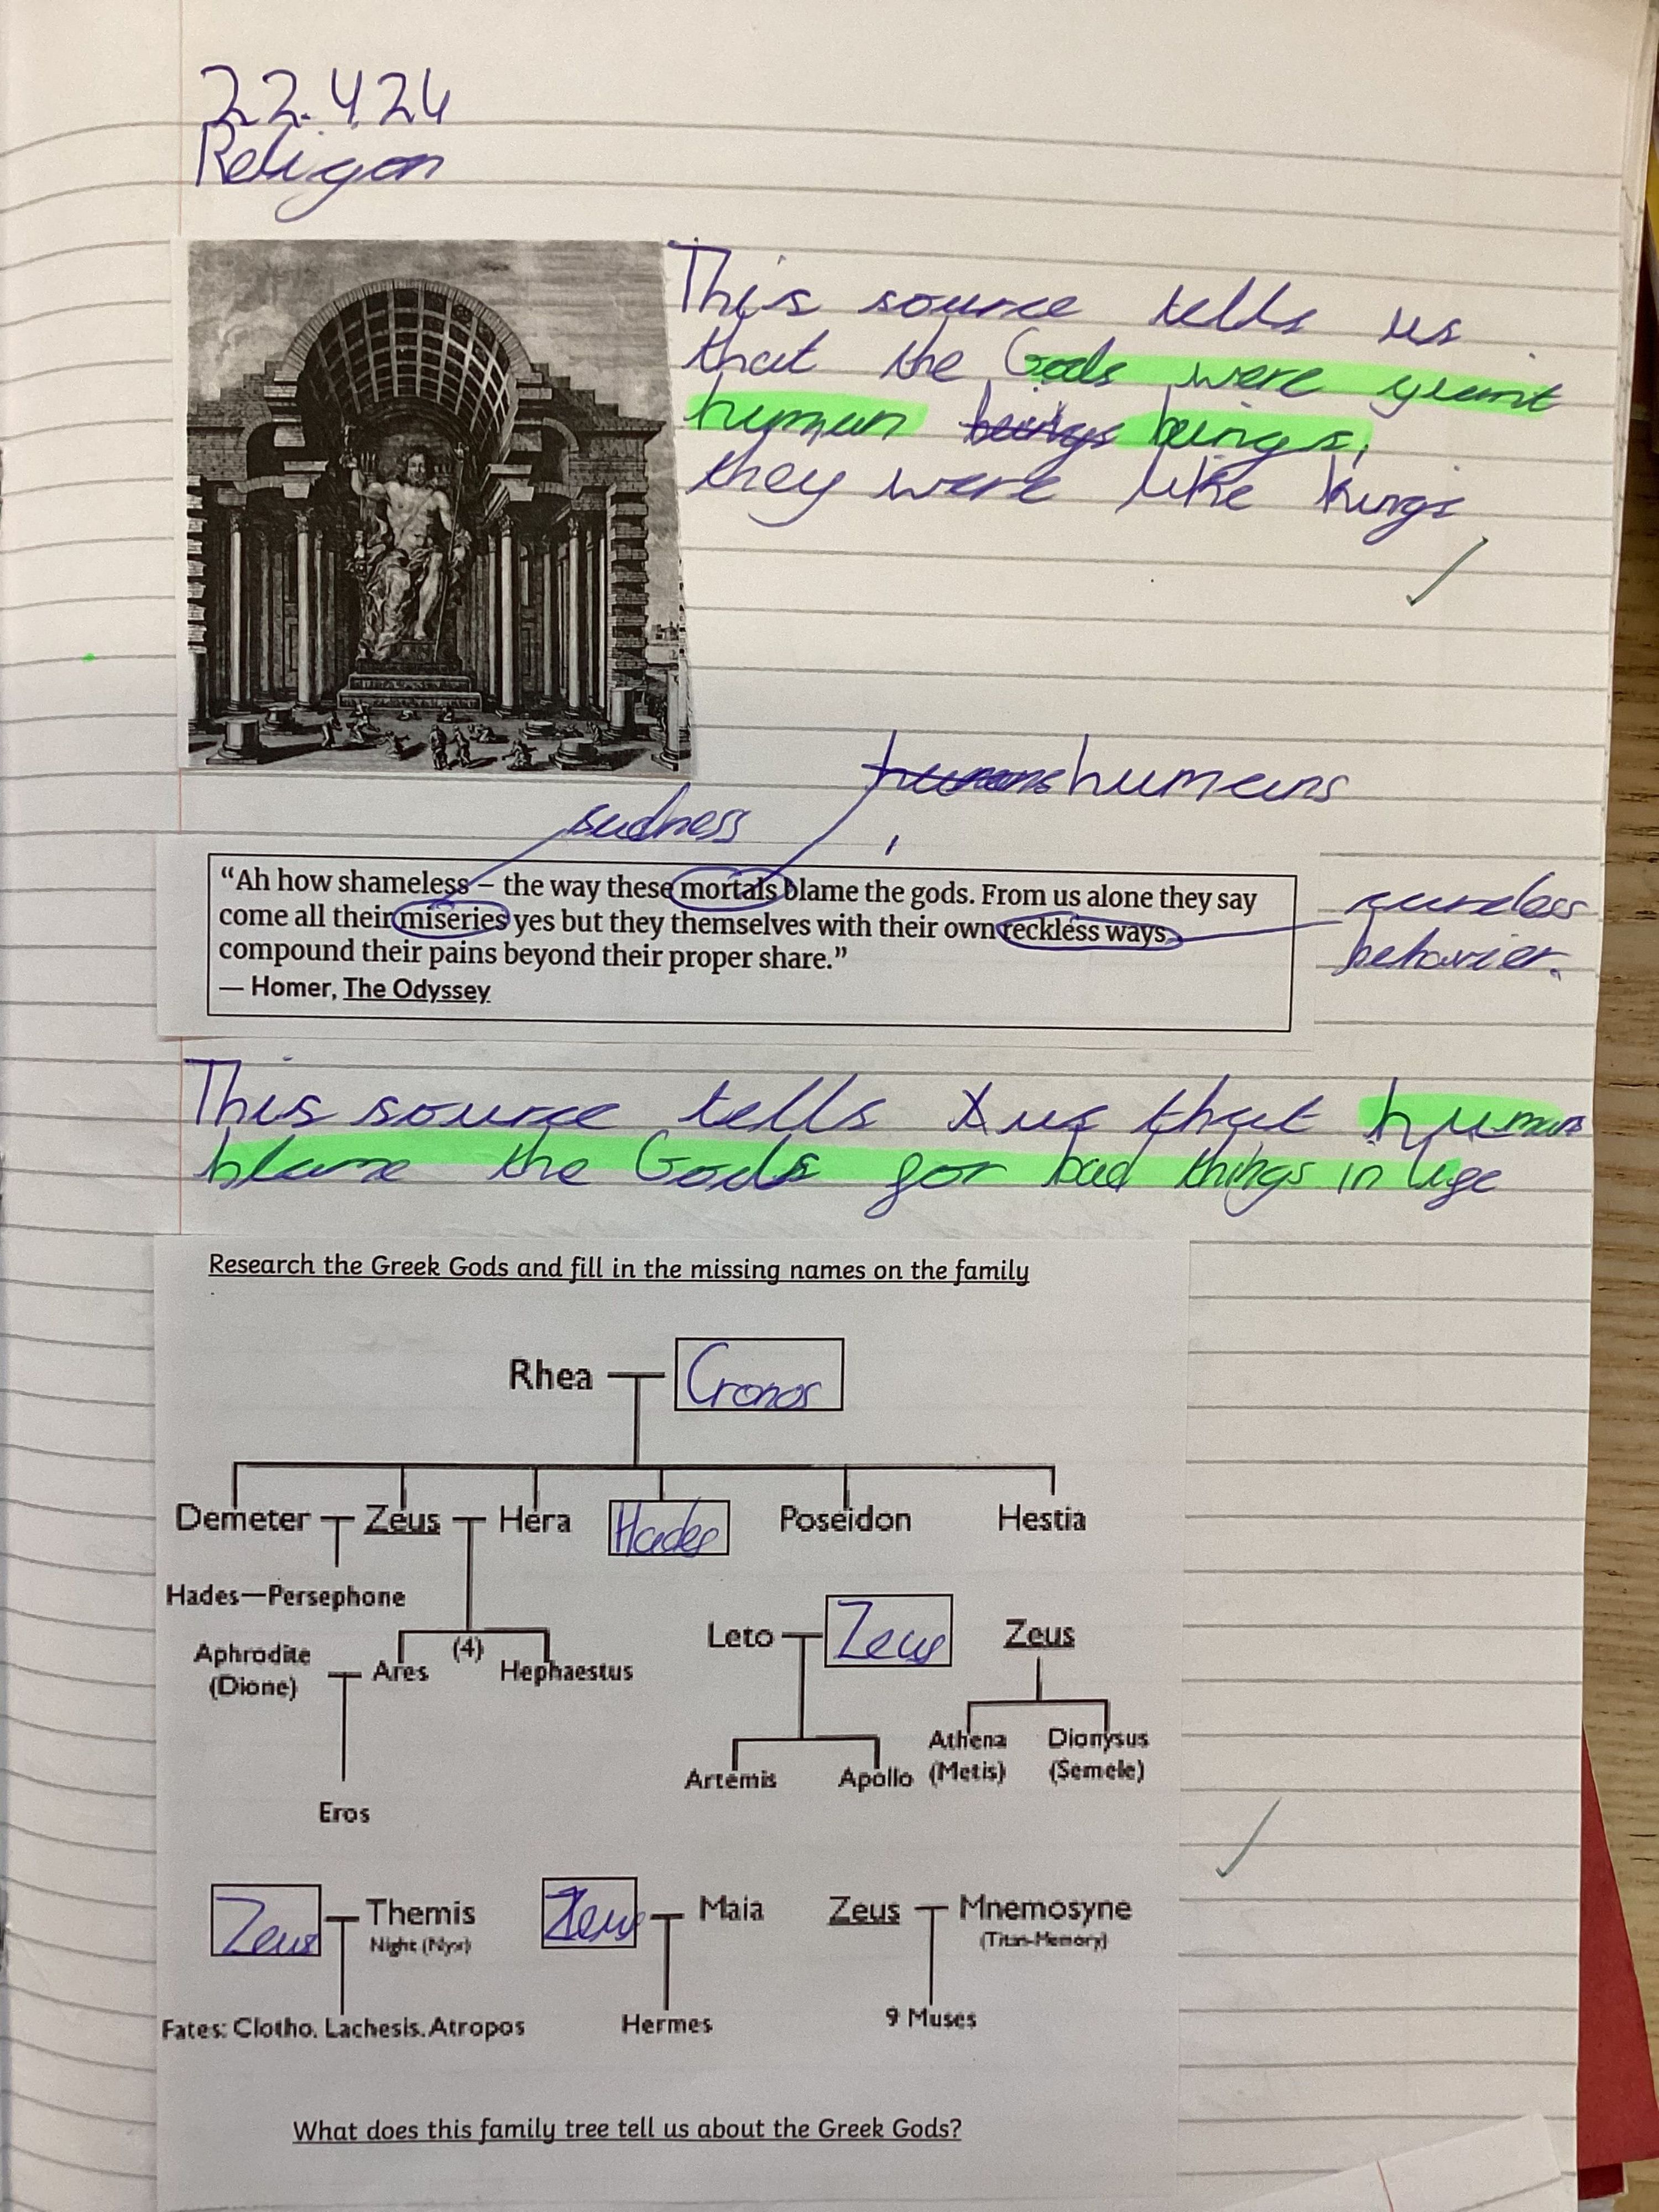 22.4.24
Religon
This source tells us
that the Gods were giant
human beings beings,
they were like kings
humans humans
sadness
"Ah how shameless – the way these mortals blame the gods. From us alone they say
come all their miseries yes but they themselves with their own reckless ways
compound their pains beyond their proper share."
— Homer, The Odyssey
careless
behavier.
This source tells us that humans
blame the Gods for bad things in life
Research the Greek Gods and fill in the missing names on the family
Rhea Cronos
Demeter Zeus Hera Hades Poseidon Hestia
Hades—Persephone
Leto Zeus Zeus
Aphrodite
(Dione) Ares (4) Hephaestus
Athena Dionysus
Artemis Apollo (Metis) (Semele)
Eros
Zeus Themis Zeus Maia Zeus Mnemosyne
Night (Nyx) (Titan-Memory)
Fates: Clotho. Lachesis. Atropos Hermes 9 Muses
What does this family tree tell us about the Greek Gods?